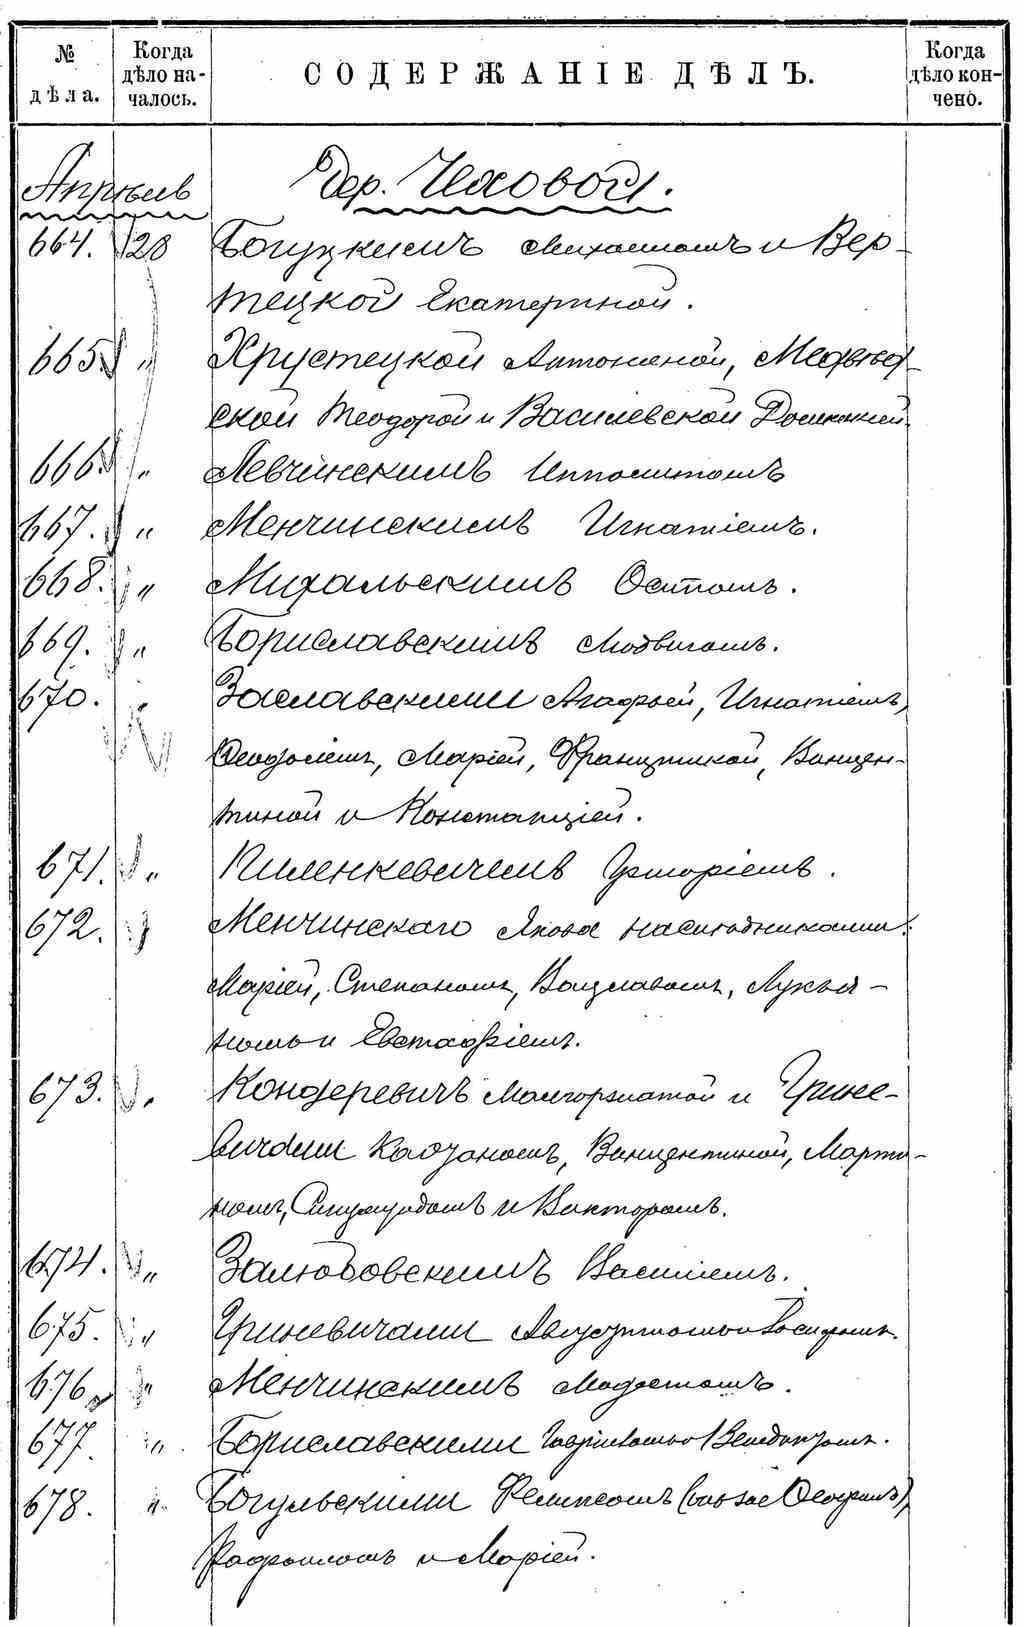 № дѣла.
Когда дѣло началось.
СОДЕРЖАНІЕ ДѢЛЪ.
Когда дѣло кончено.
Апрѣль Дер. Чеховой.
664. 28 Богуцкимъ Михаиломъ и Вер-
тецкой Екатериной.
665. " Хрустецкой Антониной,
ской Теодорой и Василевской
666. " Левчинскимъ Ипполитомъ
667. " Менчинскимъ Игнатіемъ.
668. " Михальскимъ Осипомъ.
669. " Бориславскимъ Людвигомъ.
670. " Заславскими Агафьей, Игнатіемъ,
Ѳеодосіемъ, Маріей, Францишкой, Винцен-
тиной и Констанціей.
671. " Киленкевичемъ Григоріемъ.
672. " Менчинскаго Якова наслѣдниками:
Маріей, Степаномъ, Вацлавомъ, Лукья-
номъ и Евстафіемъ.
673. " Кондеревичъ Малгоржатой и Грине-
вичами Каэтаномъ, Винцентиной, Марти-
номъ, Сигизмундомъ и Викторомъ.
674. " Залюбовскимъ Василіемъ.
675. " Гриневичами Августиномъ и Іосифомъ.
676. " Менчинскимъ Модестомъ.
677. " Бориславскими Гавріиломъ и Венедиктомъ.
678. " Богульскими Феликсомъ
Рафаиломъ и Маріей.